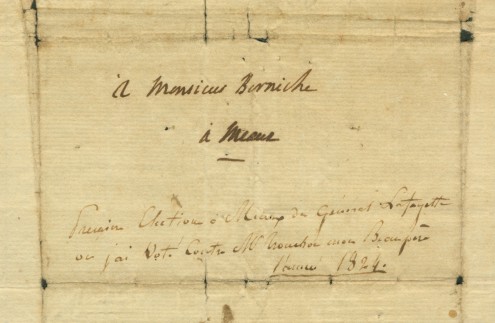 à Monsieur Berniche
à Meaux
Premiere Election à Meaux du Général Lafayette
ou j'ai voté Contre Mr mon Beaupère
1824.